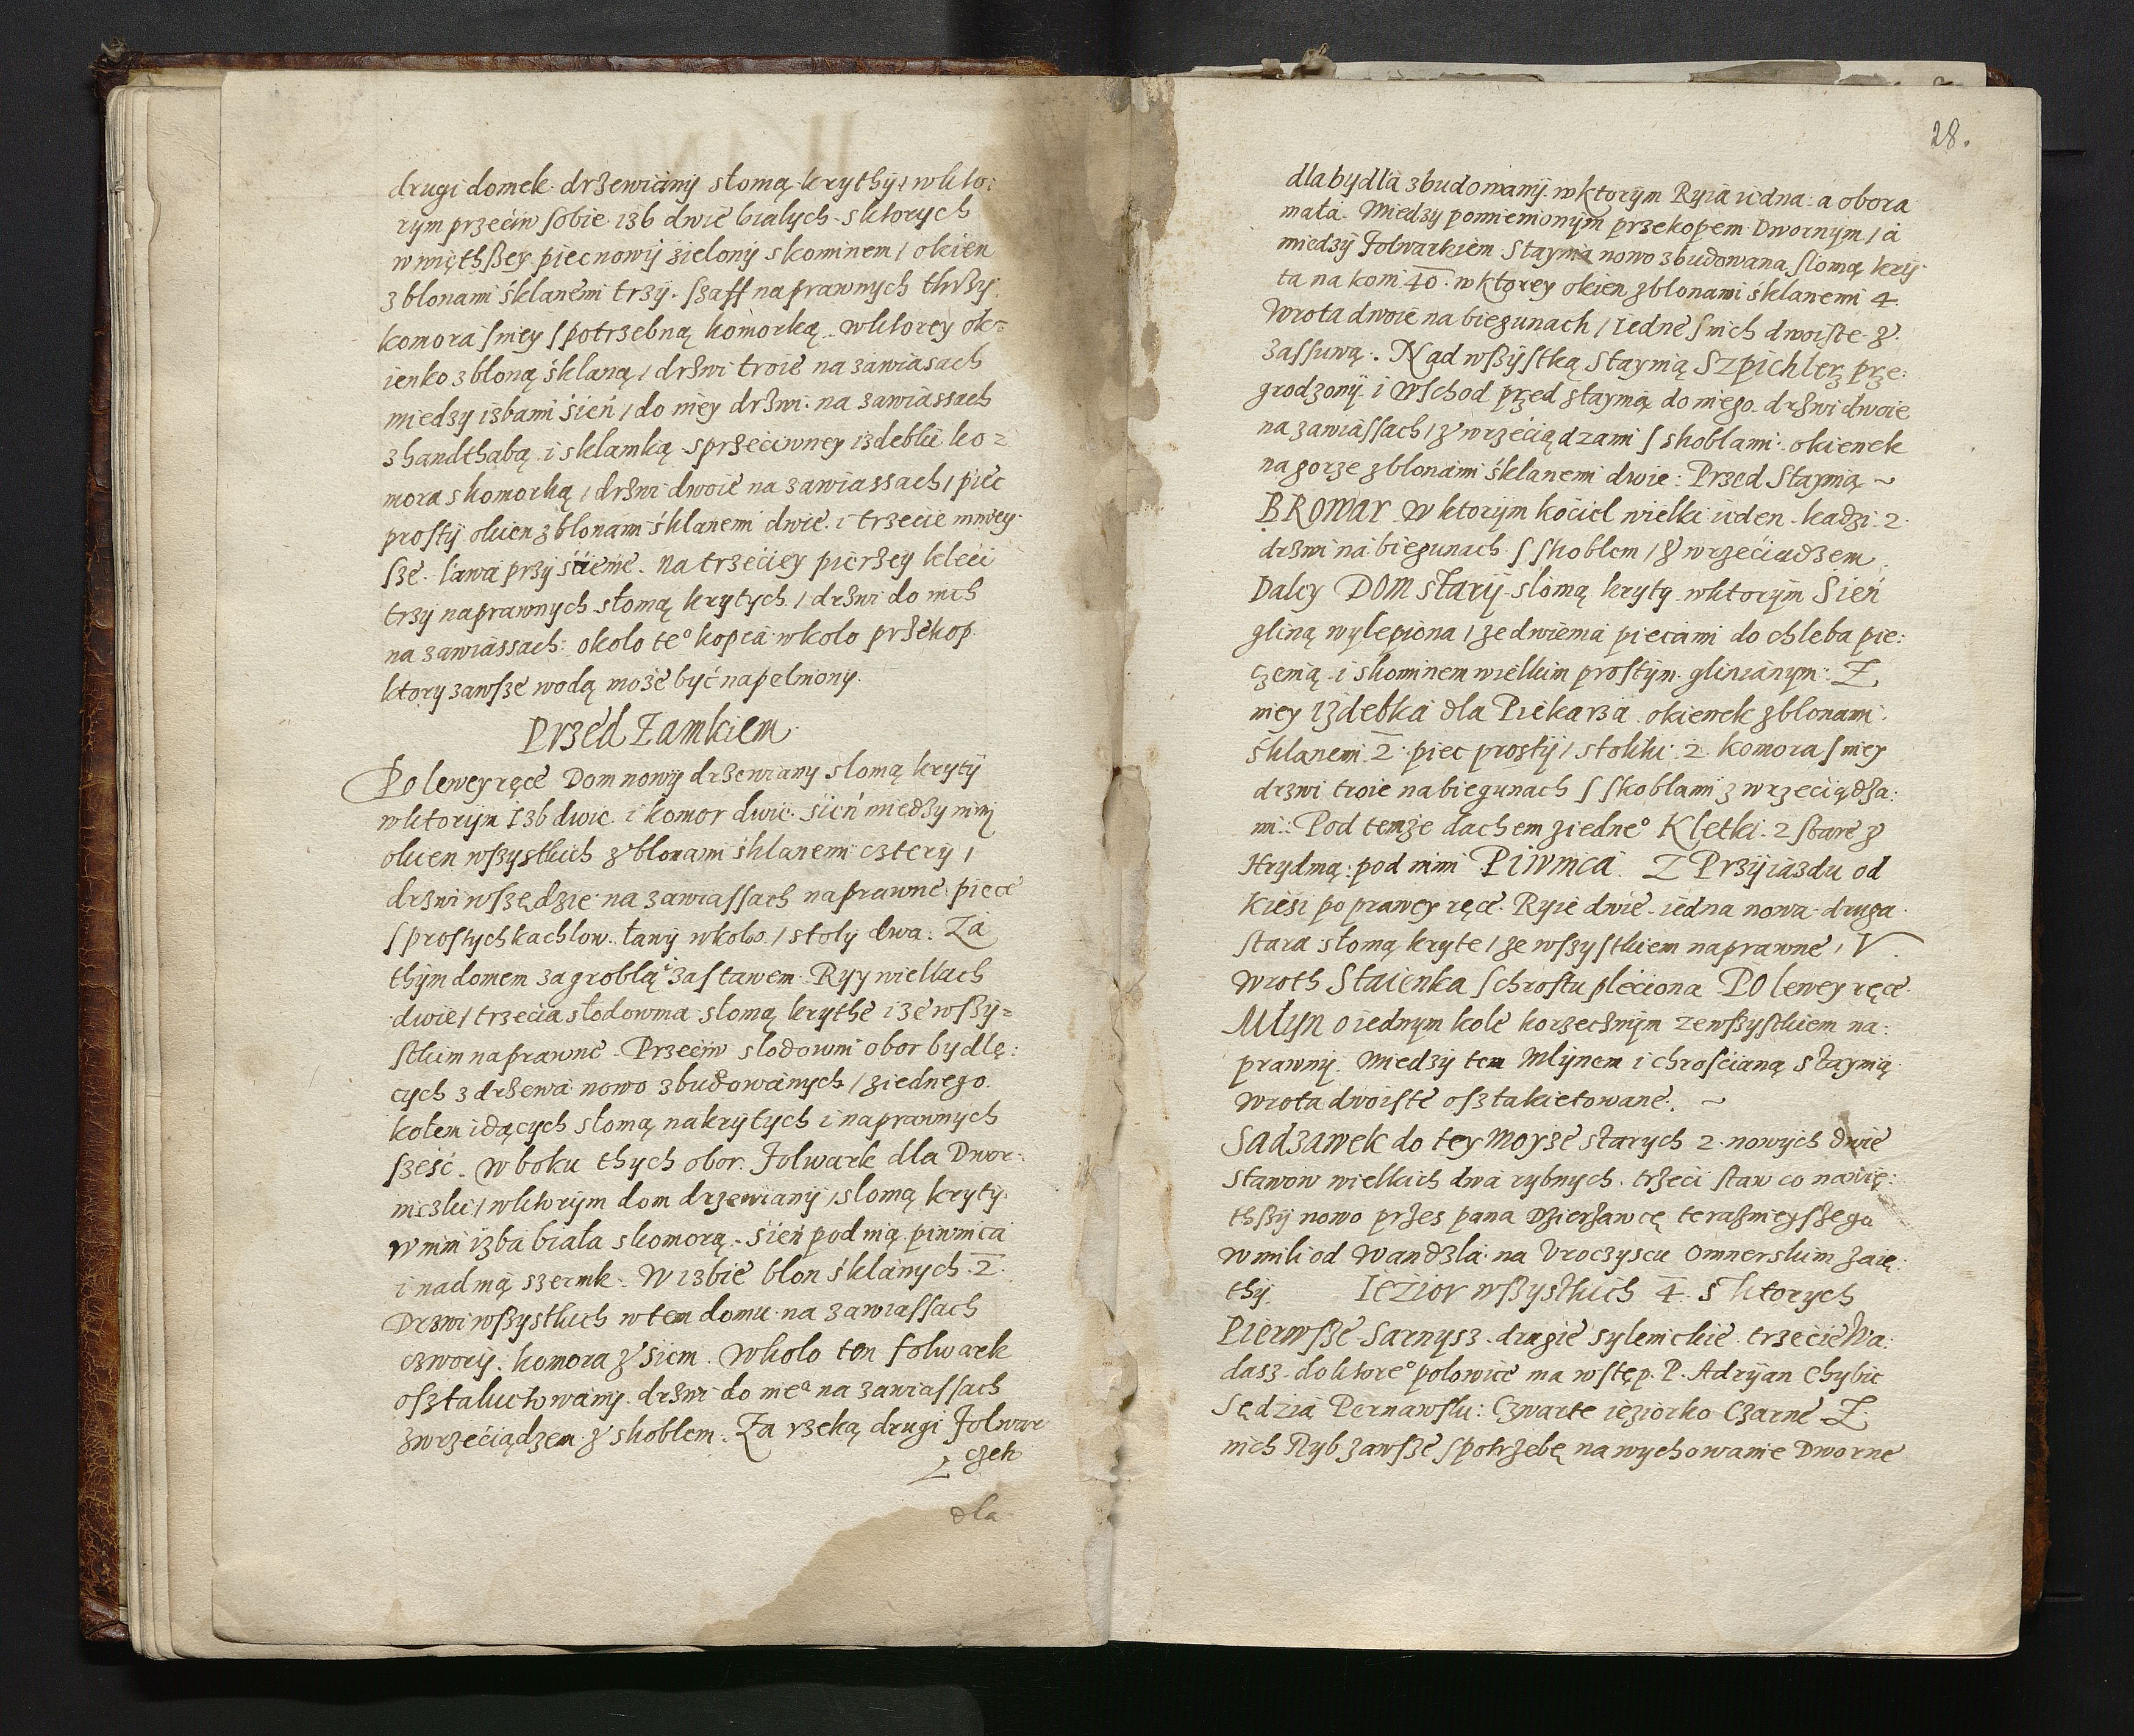 drugi domek drzewiány słomą krythy, wkto:
rym przeciw sobie izb dwie białych sktorych
wwięthßey piec nowy zielony skominem / okien
z błonami śklanemi trzy. szaff naprawnych thrzy
komora sniey spotrzebną komorką wktorey ok=
ienko z błoną śklaną / drzwi troie na zawiasach
miedzy izbami sień / do niey drzwi na zawiássach
z handthabą i sklamką sprzeciwney izdebki ko=
mora skomorką / drzwi dwoie na zawiassach / piec
prosty okien z błonami śklanemi dwie i trzecie mniey
sze. ława przy ścienie. na trzeciey pierzey kleci
trzy naprawnych słomą krytych / drzwi do nich
na zawiássach: około te° kopca wkoło przekop
ktory zawsze wodą może być napełniony.
Przed Zamkiem
Po lewey ręce Dom nowy drzewiany słomą kryty
wktorym Izb dwie i komor dwie. sień miedzy nimi
okien wßystkich z błonami śklanemi cztery /
drzwi wszędzie na zawiassach naprawne piece
sprostych kachlow. ławy wkoło / stoły dwa. Za
thym domem za groblą zastawem Ryy wielkich
dwie / trzecia słodownia słomą krythe i ze wßy=
stkim naprawne. Przeciw słodowni obor bydlę:
cych z drzewa nowo zbudowanych / ziednego
kołem idących słomą nakrytych i naprawnych
sześć. W boku thych obor Folwark dla Dwor:
niczki / wktorym dom drzewiany, słomą kryty
w nim izba biała skomorą. sień pod nią piwnica
i nad nią szernik. W izbie błon śklanych 2.
Drzwi wßystkich w tem domu na zawiassach
czwory. komora z sieni. Wkoło ten folwark
osztakietowany drzwi do nie° na zawiassach
zwrzeciądzem z skoblem. Za rzeką drugi Folwar
czek
dla
28.
dla bydła zbudowany w ktorym Ryia iedna: a obora
mała. Miedzy pomienionym przekopem Dwornym / a
miedzy Folwarkiem Staynia nowo zbudowana słomą kry
ta na koni 40. w ktorey okien z błonami śklanemi 4.
Wrota dwoie na biegunach / Iedne snich dwoiste z
zassuwą. Nad wßystką Staynią Szpichlerz prze:
grodzony i Wschod przed staynią do niego drzwi dwoie
na zawiássach / z wrzeciądzami s skoblami. okienek
na gorze z błonami śklanemi dwie: Przed Staynią ~
BROWAR W ktorym kocieł wielki ieden. kadzi 2.
drzwi na biegunach s skoblem / z wrzeciadzem
Daley DOM stary słomą kryty wktorym Sień
gliną wylepiona / ze dwiema piecami do chleba pie:
czenia i skominem wielkim prostym glinianym: Z
niey Izdebka dla Piekarza okienek z błonami
śklanemi 2. piec prosty / stołki 2. Komora sniey
drzwi troie na biegunach s skoblami z wrzeciądza:
mi: Pod temże dachem ziedne° Kletki 2 stare z
Hrydnią: pod nimi Piwnica. Z Przyiazdu od
Kiesi po prawey ręce Ryie dwie iedna nowa druga
stara słomą kryte / ze wszystkiem naprawne, V
Wroth Staienka schrostu pleciona Po lewey ręce
Młyn o iednym kole korzecznym zewßystkiem na:
prawny. Miedzy tem Młynem i chrościaną staynią
Wrota dwoiste osztakietowane. ~
Sadzawek do tey Moyze starych 2 nowych dwie
Stawow wielkich dwa rybnych. trzeci staw co nawię:
thßy nowo przes pana Dzierżawcę teraznieyszego
w mili od Wandzla na Vroczyscu Omnerskim zaię:
thy. Iezior wßystkich 4. s ktorych
Pierwsze Sarnysz. drugie sylenickie trzecie Wa:
dasz do ktore° połowice ma wstęp. P. Adryan Chybic
Sędzia Pernawski: Czwarte ieziorko Czarne Z
nich Ryb zawsze spotrzebę na wychowanie Dworne